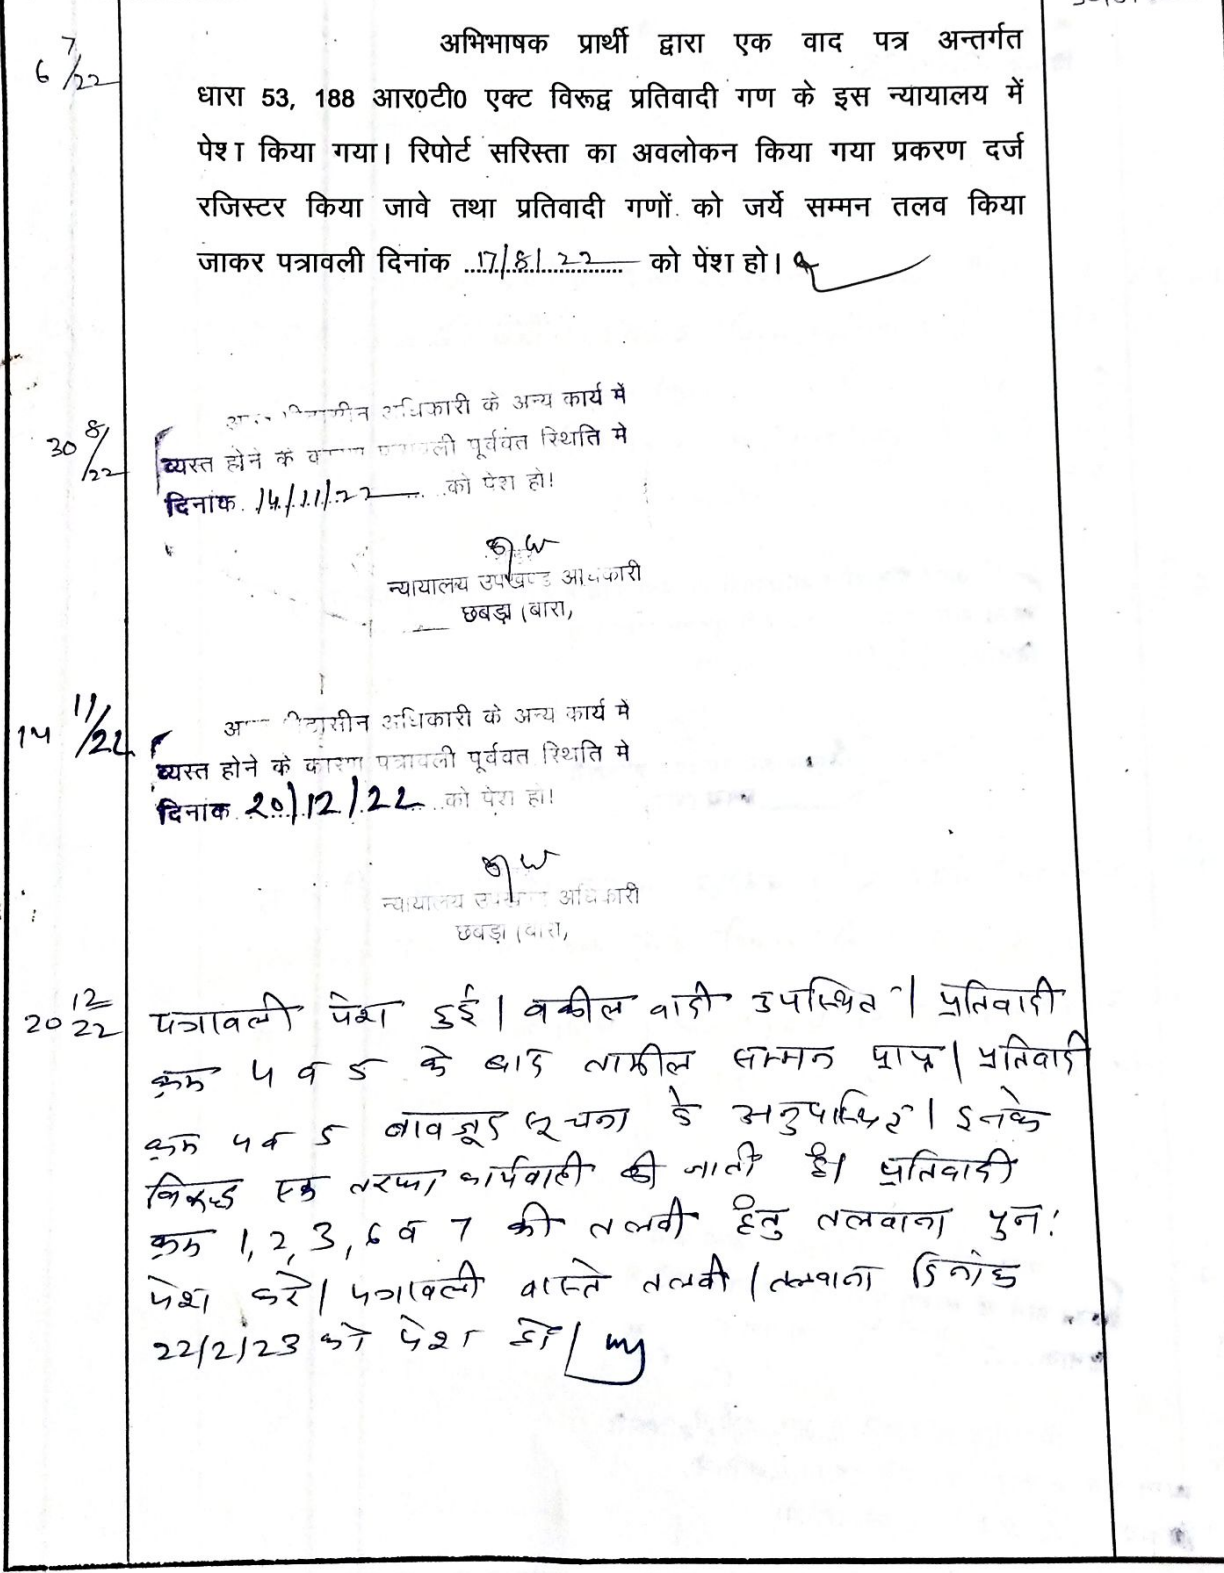 6 7/22
अभिभाषक प्रार्थी द्वारा एक वाद पत्र अन्तर्गत
धारा 53, 188 आर0टी0 एक्ट विरूद्व प्रतिवादी गण के इस न्यायालय में
पेश किया गया। रिपोर्ट सरिस्ता का अवलोकन किया गया प्रकरण दर्ज
रजिस्टर किया जावे तथा प्रतिवादी गणों को जर्ये सम्मन तलव किया
जाकर पत्रावली दिनांक 17/8/22 को पेंश हो।
30 8/22
अधिकारी के अन्य कार्य में
व्यस्त होने के पूर्ववत स्थिति मे
दिनांक 14/11/22 को पेश हो!
न्यायालय उपखण्ड अधिकारी
छबड़ा (बारा,
14 11/22
अधिकारी के अन्य कार्य मे
व्यस्त होने के कारण पत्रावली पूर्ववत स्थिति मे
दिनांक 20/12/22 को पेश हो!
न्यायालय अधिकारी
छबड़ा (बारा,
20 12/22
पत्रावली पेश हुई। वकील वादी उपस्थित। प्रतिवादी
क्रम 4 व 5 के बाद तामील सम्मन प्राप्त। प्रतिवादी
क्रम 4 व 5 बावजूद सूचना के अनुपस्थित। इनके
विरूद्ध एक तरफा कार्यवाही की जाती है। प्रतिवादी
क्रम 1, 2, 3, 6 व 7 की तलवी हेतु तलवाना पुनः
पेश करे। पत्रावली वास्ते तलवी/तलवाना दिनांक
22/2/23 को पेश हो।